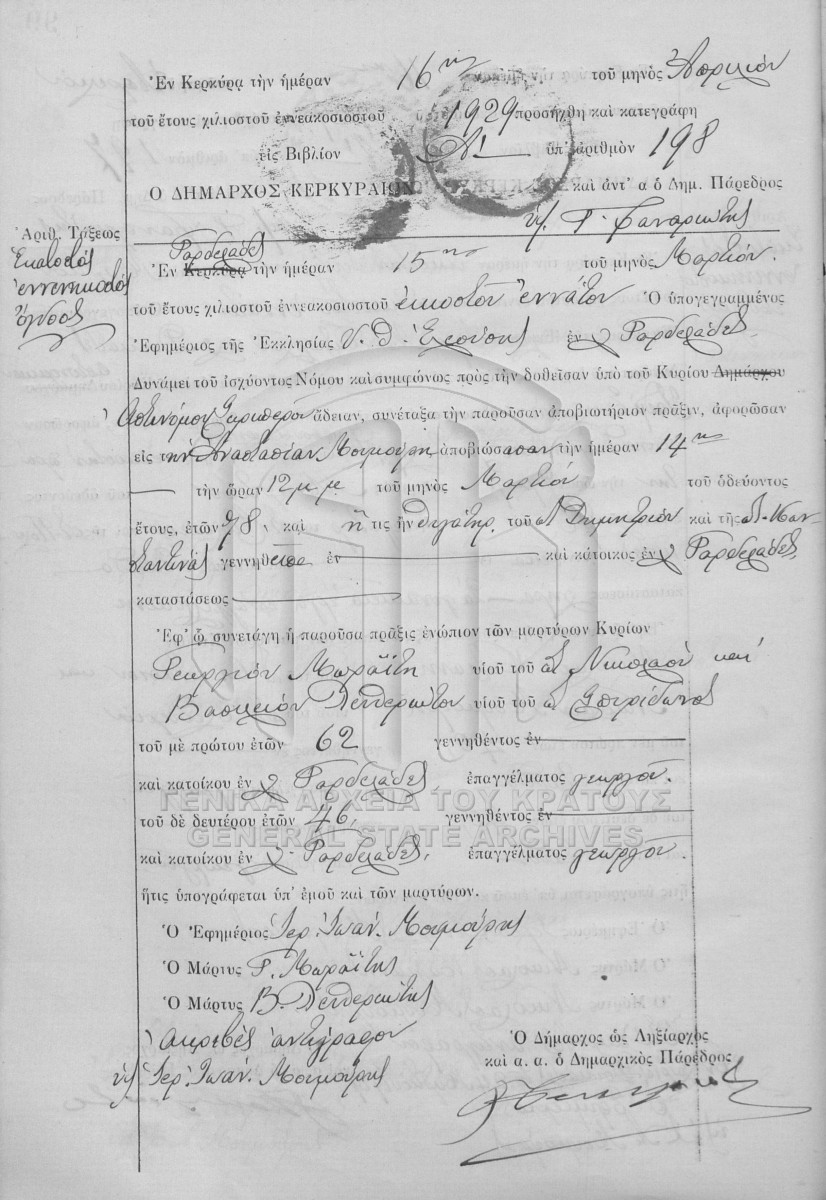 Ἐν Κερκύρᾳ τὴν ἡμέραν 16ην τοῦ μηνὸς Ἀπριλίου
τοῦ ἔτους χιλιοστοῦ ἐννεακοσιοστοῦ 1929 προσήχθη καὶ κατεγράφη
εἰς Βιβλίον Α' ὑπ' ἀριθμὸν 198
Ο ΔΗΜΑΡΧΟΣ ΚΕΡΚΥΡΑΙΩΝ καὶ ἀντ' α ὁ Δημ. Πάρεδρος
Γ. Φαναριώτης
Ἀριθ. Τάξεως
Ἑκατοστὸς
ἐννενηκοστὸς
ὄγδοος
Γαρδελάδες
Ἐν Κερκύρᾳ τὴν ἡμέραν 15ην τοῦ μηνὸς Μαρτίου.
τοῦ ἔτους χιλιοστοῦ ἐννεακοσιοστοῦ εἰκοστοῦ ἐννάτου Ὁ ὑπογεγραμμένος
Ἐφημέριος τῆς Ἐκκλησίας Υ. Θ. Ἐλεούσης ἐν Γαρδελάδες
Δυνάμει τοῦ ἰσχύοντος Νόμου καὶ συμφώνως πρὸς τὴν δοθεῖσαν ὑπὸ τοῦ Κυρίου Δημάρχου
Ἀστυνόμου Σκριπεροῦ ἄδειαν, συνέταξα τὴν παροῦσαν ἀποβιωτήριον πρᾶξιν, ἀφορῶσαν
εἰς τὴν Ἀναστασίαν Μουμούρη ἀποβιώσασαν τὴν ἡμέραν 14ην
τὴν ὥραν 12 μ.μ. τοῦ μηνὸς Μαρτίου τοῦ ὁδεύοντος
ἔτους, ἐτῶν 78, καὶ ἥ τις ἦν θυγάτηρ τοῦ Δημητρίου καὶ τῆς Κων-
σταντίνας γεννηθεῖσα ἐν καὶ κάτοικος ἐν Γαρδελάδες
καταστάσεως
Ἐφ' ᾧ συνετάγη ἡ παροῦσα πρᾶξις ἐνώπιον τῶν μαρτύρων Κυρίων
Γεωργίου Μωραΐτη υἱοῦ τοῦ Νικολάου καὶ
Βασιλείου Λευθεριώτου υἱοῦ τοῦ Σπυρίδωνος
τοῦ μὲ πρώτου ἐτῶν 62 γεννηθέντος ἐν
καὶ κατοίκου ἐν Γαρδελάδες ἐπαγγέλματος γεωργοῦ.
ΓΕΝΙΚΑ ΑΡΧΕΙΑ ΤΟΥ ΚΡΑΤΟΥΣ
τοῦ δὲ δευτέρου ἐτῶν 46, γεννηθέντος ἐν
GENERAL STATE ARCHIVES
καὶ κατοίκου ἐν Γαρδελάδες, ἐπαγγέλματος γεωργοῦ.
ἥτις ὑπογράφεται ὑπ' ἐμοῦ καὶ τῶν μαρτύρων.
Ὁ Ἐφημέριος Ἱερ. Ἰωάν. Μουμούρης
Ὁ Μάρτυς Γ. Μωραΐτης
Ὁ Μάρτυς Β. Λευθεριώτης
Ἀκριβὲς ἀντίγραφον
Ἱερ. Ἰωάν. Μουμούρης
Ὁ Δήμαρχος ὡς Ληξίαρχος
καὶ α. α. ὁ Δημαρχικὸς Πάρεδρος